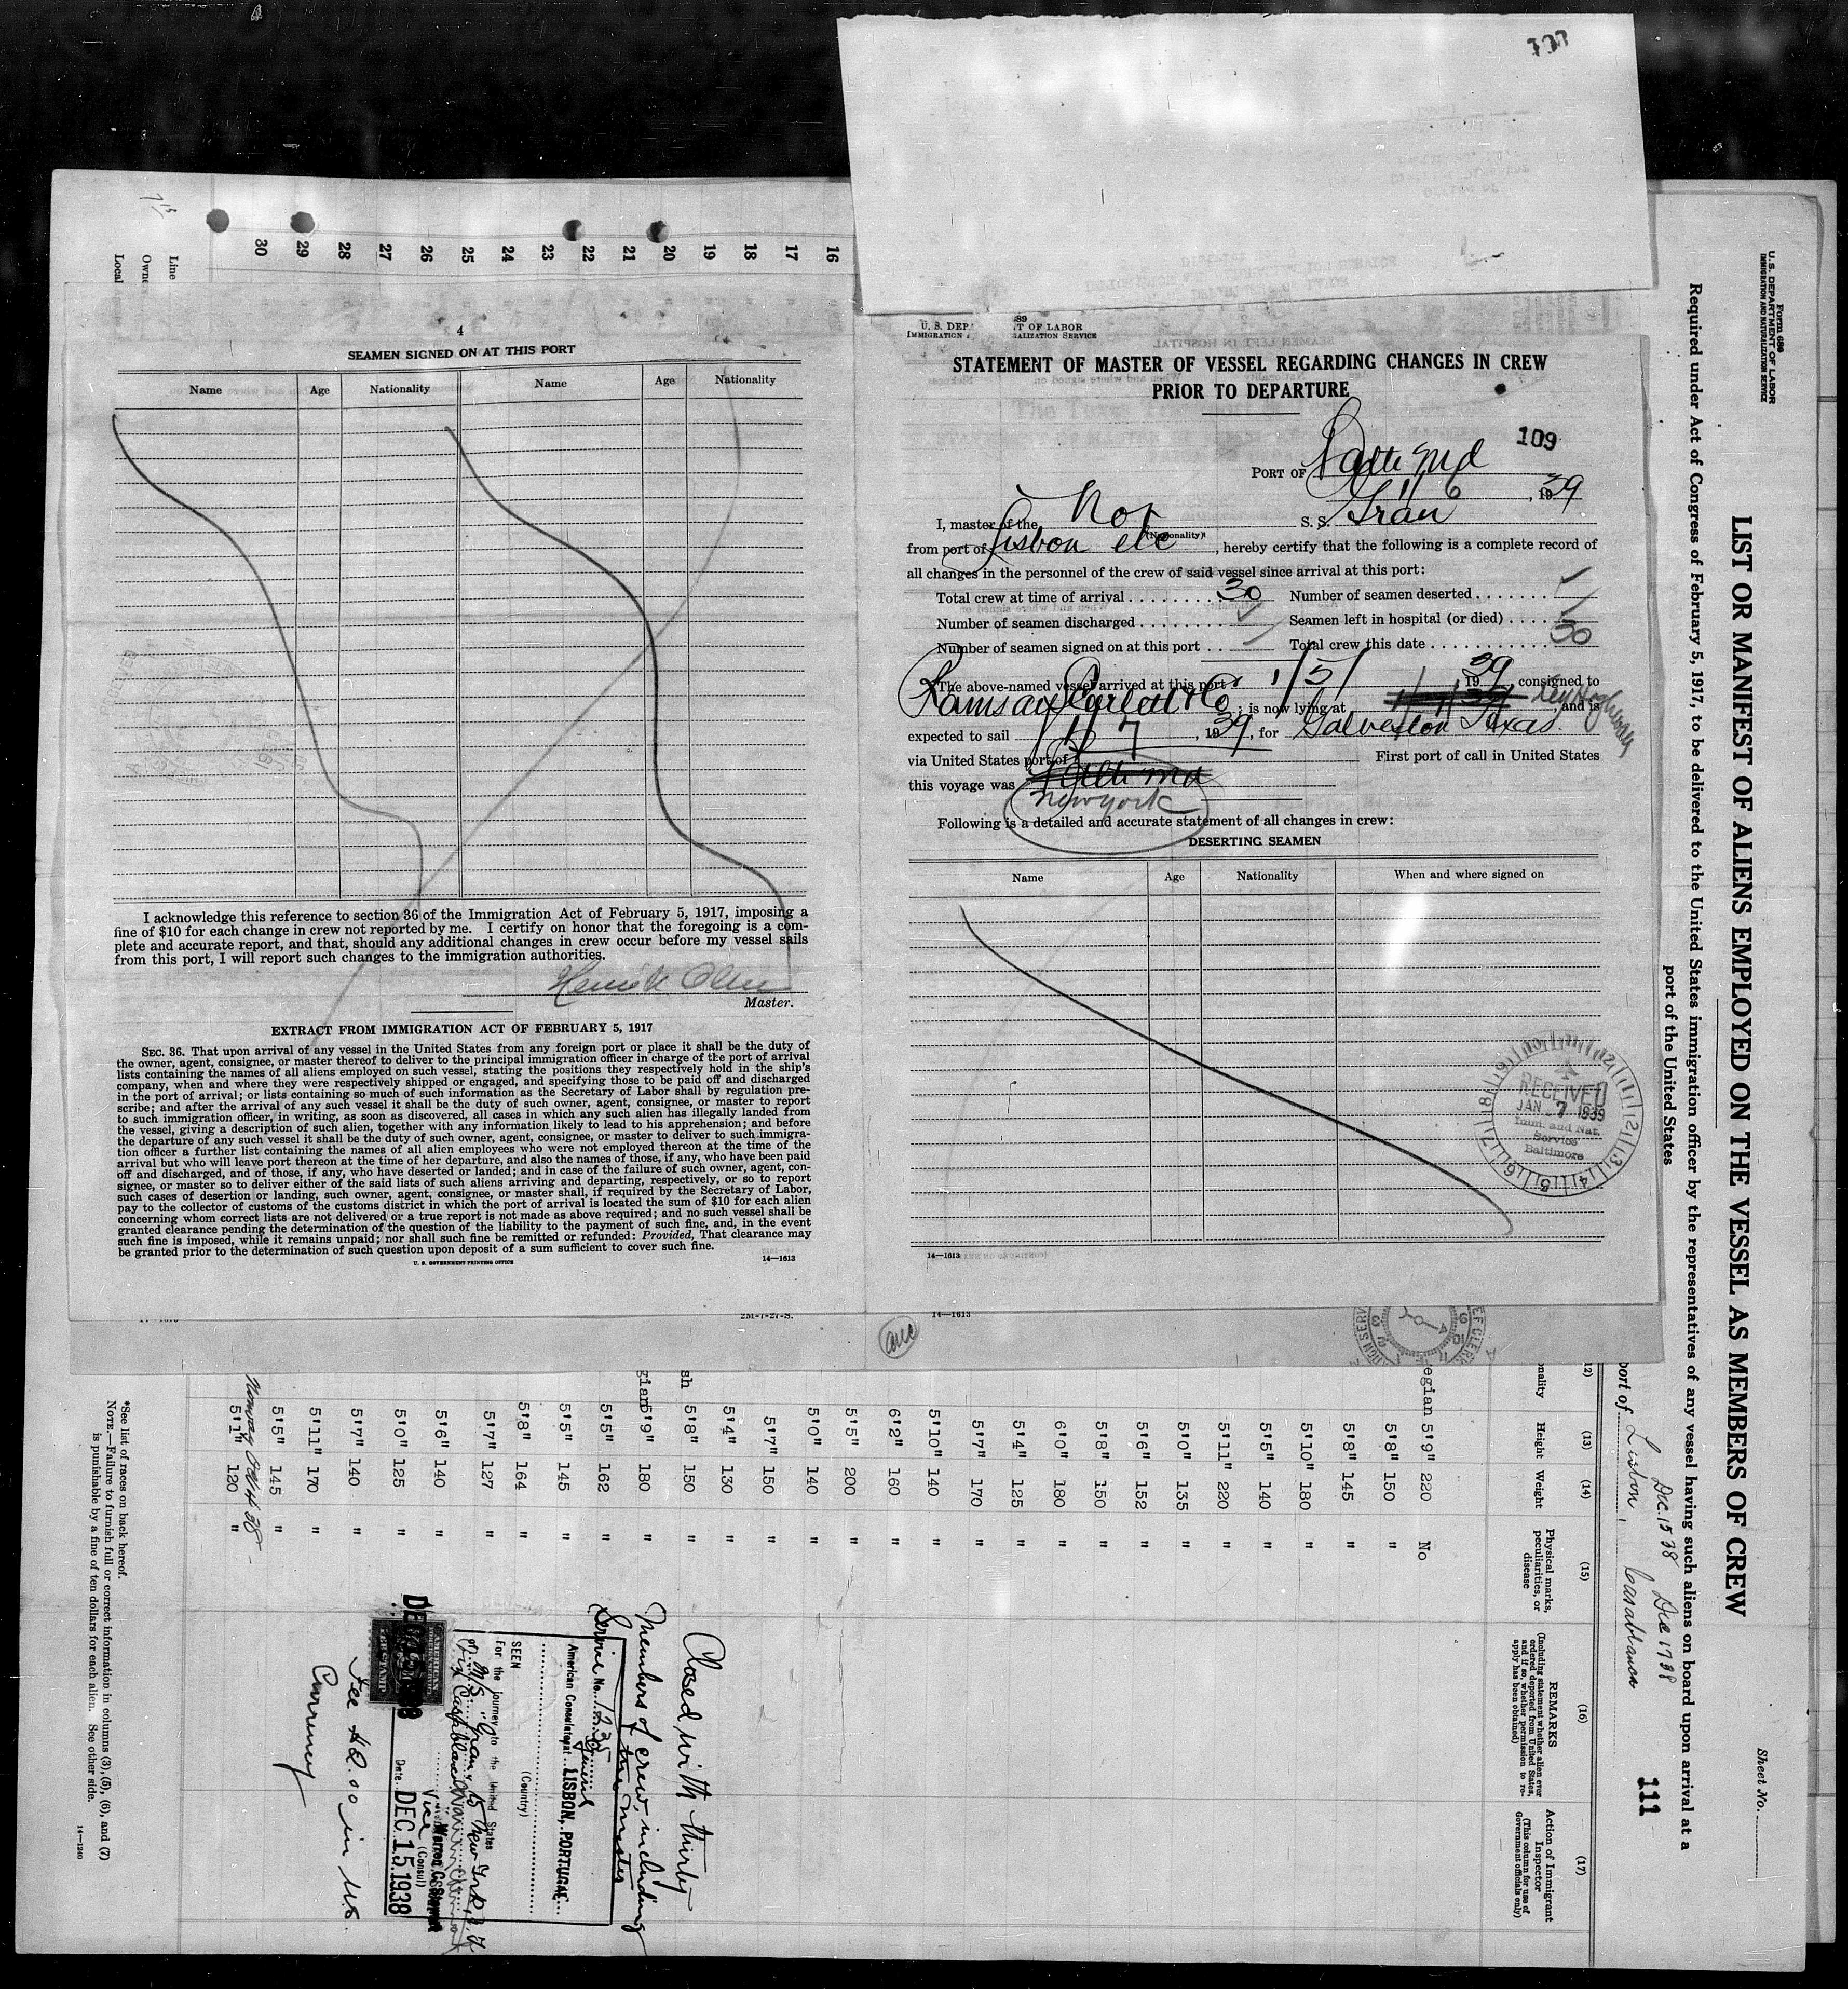 108
7 1/2
Line
Owne
Local
30
29
28
27
26
25
24
23
22
21
20
19
18
17
16
4
SEAMEN SIGNED ON AT THIS PORT
Name Age Nationality Name Age Nationality
I acknowledge this reference to section 36 of the Immigration Act of February 5, 1917, imposing a
fine of $10 for each change in crew not reported by me. I certify on honor that the foregoing is a com-
plete and accurate report, and that, should any additional changes in crew occur before my vessel sails
from this port, I will report such changes to the immigration authorities.
Henrik Olsen
Master.
EXTRACT FROM IMMIGRATION ACT OF FEBRUARY 5, 1917
SEC. 36. That upon arrival of any vessel in the United States from any foreign port or place it shall be the duty of
the owner, agent, consignee, or master thereof to deliver to the principal immigration officer in charge of the port of arrival
lists containing the names of all aliens employed on such vessel, stating the positions they respectively hold in the ship's
company, when and where they were respectively shipped or engaged, and specifying those to be paid off and discharged
in the port of arrival; or lists containing so much of such information as the Secretary of Labor shall by regulation pre-
scribe; and after the arrival of any such vessel it shall be the duty of such owner, agent, consignee, or master to report
to such immigration officer, in writing, as soon as discovered, all cases in which any such alien has illegally landed from
the vessel, giving a description of such alien, together with any information likely to lead to his apprehension; and before
the departure of any such vessel it shall be the duty of such owner, agent, consignee, or master to deliver to such immigra-
tion officer a further list containing the names of all alien employees who were not employed thereon at the time of the
arrival but who will leave port thereon at the time of her departure, and also the names of those, if any, who have been paid
off and discharged, and of those, if any, who have deserted or landed; and in case of the failure of such owner, agent, con-
signee, or master so to deliver either of the said lists of such aliens arriving and departing, respectively, or so to report
such cases of desertion or landing, such owner, agent, consignee, or master shall, if required by the Secretary of Labor,
pay to the collector of customs of the customs district in which the port of arrival is located the sum of $10 for each alien
concerning whom correct lists are not delivered or a true report is not made as above required; and no such vessel shall be
granted clearance pending the determination of the question of the liability to the payment of such fine, and, in the event
such fine is imposed, while it remains unpaid; nor shall such fine be remitted or refunded: Provided, That clearance may
be granted prior to the determination of such question upon deposit of a sum sufficient to cover such fine.
U. S. GOVERNMENT PRINTING OFFICE 14—1613
2M-7-27-S.
89
U. S. DEP T OF LABOR
IMMIGRATION ALIZATION SERVICE
STATEMENT OF MASTER OF VESSEL REGARDING CHANGES IN CREW
PRIOR TO DEPARTURE
109
PORT OF Balto Md
1/6, 1939
I, master of the Nor S. S. Gran
(Nationality)
from port of Lisbon etc, hereby certify that the following is a complete record of
all changes in the personnel of the crew of said vessel since arrival at this port:
Total crew at time of arrival 30 Number of seamen deserted
Number of seamen discharged Seamen left in hospital (or died)
Number of seamen signed on at this port Total crew this date 30
The above-named vessel arrived at this port 1/5/ 1939, consigned to
Ramsay Scarlett & Co; is now lying at Key Highway, and is
expected to sail 1/7, 1939, for Galveston Texas
via United States port of First port of call in United States
this voyage was Balto Md
New York
Following is a detailed and accurate statement of all changes in crew:
DESERTING SEAMEN
Name Age Nationality When and where signed on
RECEIVED
JAN 7 1939
Imm. and Nat.
Service
Baltimore
14—1613
14—1613
Form 689
U. S. DEPARTMENT OF LABOR
IMMIGRATION AND NATURALIZATION SERVICE
Sheet No.
LIST OR MANIFEST OF ALIENS EMPLOYED ON THE VESSEL AS MEMBERS OF CREW
Required under Act of Congress of February 5, 1917, to be delivered to the United States immigration officer by the representatives of any vessel having such aliens on board upon arrival at a
port of the United States
111
Dec. 15 38, Dec 17 38
port of Lisbon, Casablanca
12) (13) (14) (15) (16) (17)
onality Height Weight Physical marks, peculiarities, or disease
REMARKS
(Including statement whether alien ever ordered deported from United States, and if so, whether permission to re-apply has been obtained)
Action of Immigrant Inspector
(This column for use of Government officials only)
egian 5'9" 220 No
5'8" 150 "
5'8" 145 "
5'10" 180 "
5'5" 140 "
5'11" 220 "
5'0" 135 "
5'6" 152 "
5'8" 150 "
6'0" 180 "
5'4" 125 "
5'7" 170 "
5'10" 140 "
6'2" 160 "
5'5" 200 "
5'0" 140 "
5'7" 150 "
5'4" 130 "
sh 5'8" 150 "
gian 5'9" 180 "
5'5" 162 "
5'5" 145 "
5'8" 164 "
5'7" 127 "
5'6" 140 "
5'0" 125 "
5'7" 140 "
5'11" 170 "
5'5" 145 "
Norway Oct 4 38
5'1" 120 "
Closed with thirty
members of crew, including
the master
Service No. 1235
American Consulate General LISBON, PORTUGAL
(Country)
SEEN
For the journey to the United States
M/S Gran, to New York, N.Y.
via Casablanca
Warren C. Stewart
Vice (Consul)
Date DEC 15 1938
AMERICAN
FEE STAMP
Fee $2.00 in U.S.
Currency
*See list of races on back hereof.
NOTE.—Failure to furnish full or correct information in columns (3), (5), (6), and (7)
is punishable by a fine of ten dollars for each alien. See other side.
14—1240